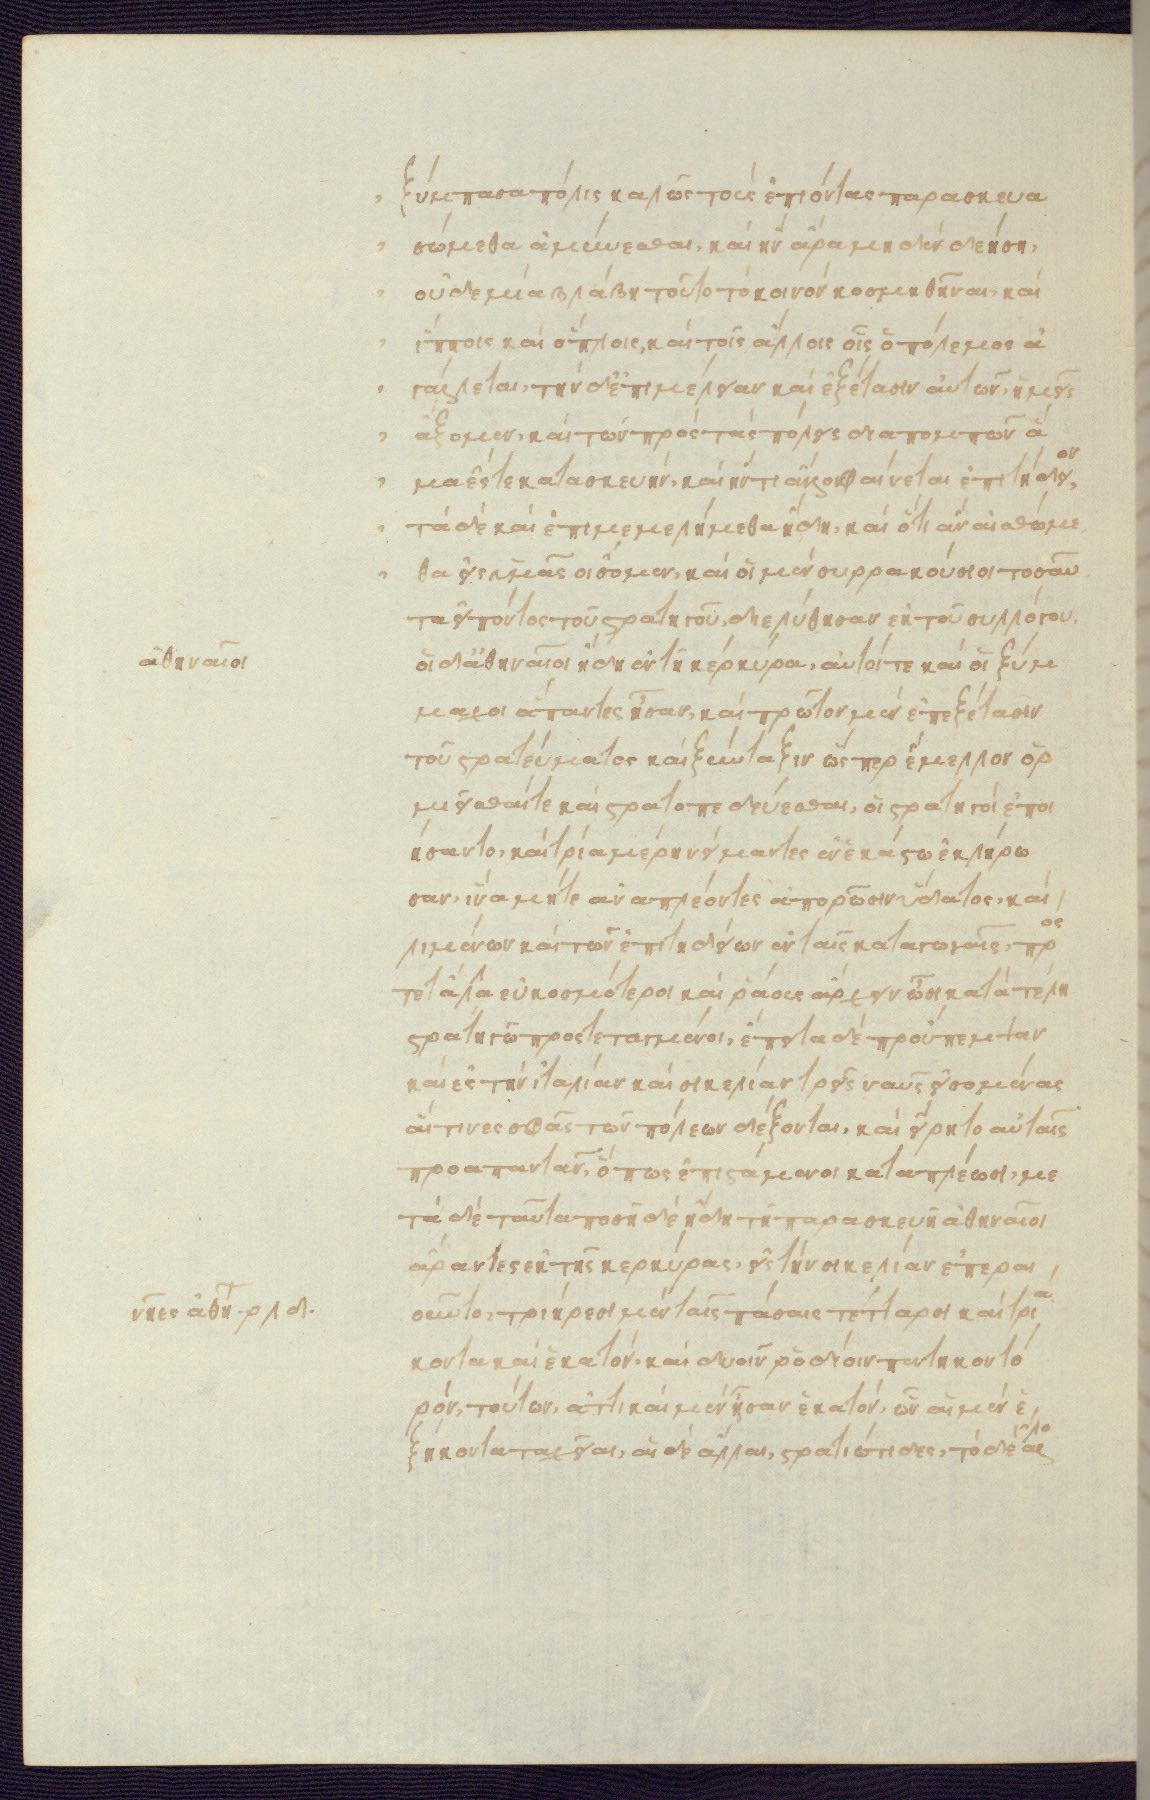 ξύμπασα πόλις καλῶς τοὺς ἐπιόντας παρασκευα
σώμεθα ἀμύνεσθαι, καὶ ἢν ἄρα μηδὲν δεήσῃ,
οὐδεμία βλάβη τοῦ τὸ κοινὸν κοσμηθῆναι, καὶ
ἵπποις καὶ ὅπλοις, καὶ τοῖς ἄλλοις οἷς ὁ πόλεμος ἀ
γάλλεται, τὴν δ' ἐπιμέλειαν καὶ ἐξέτασιν αὐτῶν, ἡμεῖς
ἕξομεν, καὶ τῶν πρὸς τὰς πόλεις διαπομπῶν ἅ
μα ἔς τε κατασκευὴν, καὶ ἤν τι ἄλλο φαίνεται ἐπιτήδειον,
τὰ δὲ καὶ ἐπιμεμελήμεθα ἤδη, καὶ ὅτι ἂν αἰσθώμε
θα εἰς ὑμᾶς οἴσομεν, καὶ οἱ μὲν συρρακούσιοι τοσαῦ
τα εἰπόντος τοῦ στρατηγοῦ, διελύθησαν ἐκ τοῦ συλλόγου.
ἀθηναῖοι
οἱ δ' ἀθηναῖοι ἤδη ἐν τῇ κερκύρα, αὐτοί τε καὶ οἱ ξύμ
μαχοι ἅπαντες ἦσαν, καὶ πρῶτον μὲν ἐπεξέτασιν
τοῦ στρατεύματος καὶ ξύνταξιν ὥσπερ ἔμελλον ὁρ
μιεῖσθαί τε καὶ στρατοπεδεύεσθαι, οἱ στρατηγοὶ ἐποι
ήσαντο, καὶ τρία μέρη νείμαντες ἓν ἑκάστω ἐκλήρω
σαν, ἵνα μήτε ἅμα πλέοντες ἀπορῶσιν ὕδατος, καὶ
λιμένων καὶ τῶν ἐπιτηδείων ἐν ταῖς καταγωγαῖς, πρός
τε τἄλλα εὐκοσμότεροι καὶ ῥάους ἄρχειν ὦσι κατὰ τέλη
στρατηγῶ προστεταγμένοι, ἔπειτα δὲ προύπεμψαν
καὶ ἐς τὴν ἰταλίαν καὶ σικελίαν τρεῖς ναῦς εἰσομένας
αἵτινες σφᾶς τῶν πόλεων δέξονται, καὶ εἴρητο αὐταῖς
προαπαντᾶν, ὅπως ἐπιστάμενοι καταπλέωσι, με
τὰ δὲ ταῦτα τοσῇδε ἤδη τῇ παρασκευῇ ἀθηναῖοι
ἄραντες ἐκ τῆς κερκύρας, εἰς τὴν σικελίαν ἐπεραι
νῆες ἀθη. ρλδ.
οῦντο, τριήρεσι μὲν ταῖς πάσαις τέτταρσι καὶ τριά
κοντα καὶ ἑκατόν, καὶ δυοῖν ῥοδίοιν πεντηκοντό
ροιν, τούτων, ἀττικαὶ μὲν ἦσαν ἑκατόν, ὧν αἱ μὲν ἑ
ξήκοντα ταχεῖαι, αἱ δὲ ἄλλαι, στρατιώτιδες, τὸ δὲ ἄλλο